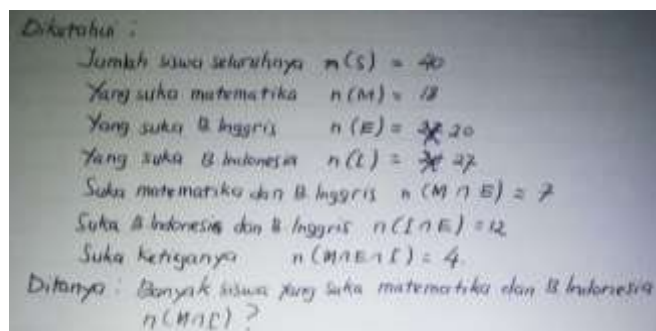 Diketahui :
Jumlah siswa seluruhnya n(S) = 40
Yang suka matematika n(M) = 18
Yang suka B Inggris n(E) = 20
Yang suka B Indonesia n(I) = 27
Suka matematika dan B Inggris n(M ∩ E) = 7
Suka B Indonesia dan B Inggris n(I ∩ E) = 12
Suka Ketiganya n(M ∩ E ∩ I) = 4
Ditanya : Banyak siswa yang suka matematika dan B Indonesia
n(M ∩ I) ?